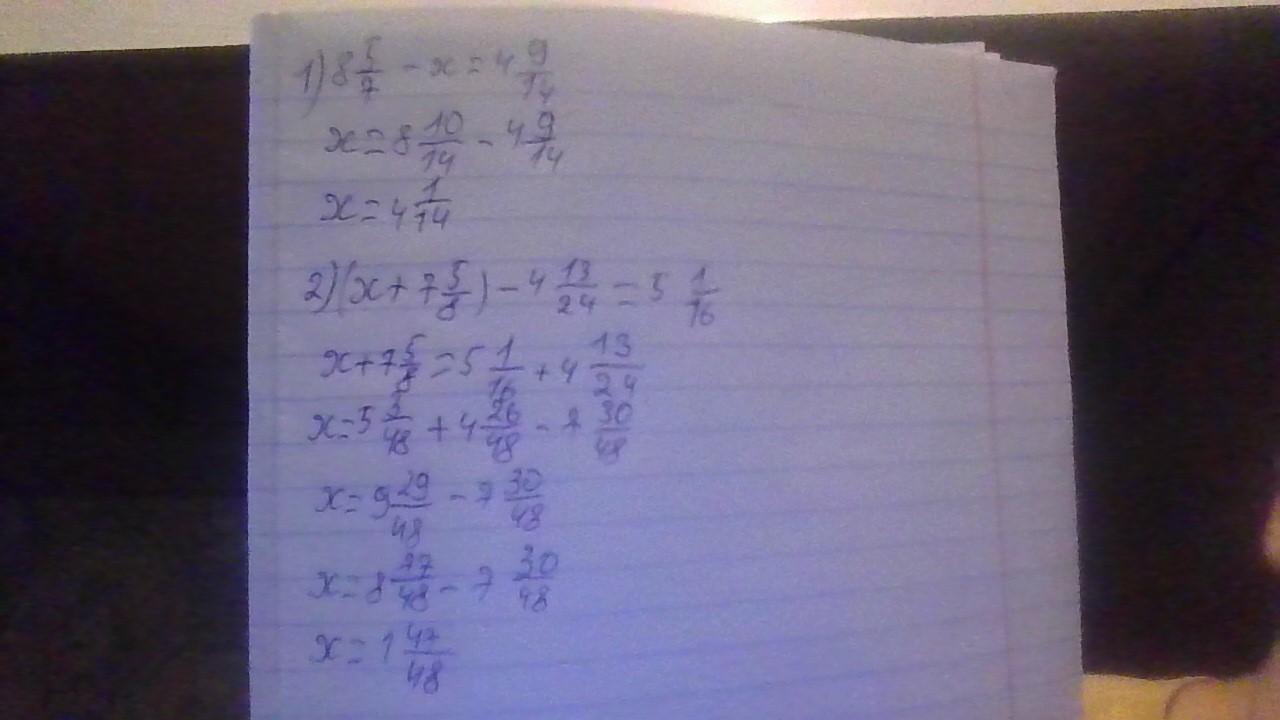 1) 8 5/7 - x = 4 9/14
x = 8 10/14 - 4 9/14
x = 4 1/14
2) (x + 7 5/8) - 4 13/24 = 5 1/16
x + 7 5/8 = 5 1/16 + 4 13/24
x = 5 3/48 + 4 26/48 - 7 30/48
x = 9 29/48 - 7 30/48
x = 8 77/48 - 7 30/48
x = 1 47/48